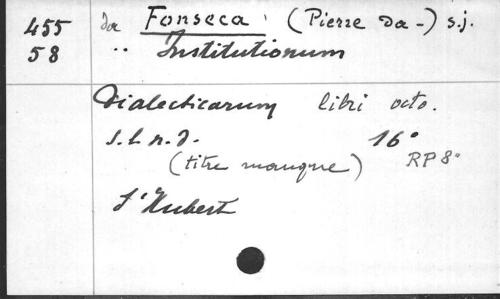 455 da Fonseca (Pierre Da -) s.j.
58 " Institutionum
Dialecticarum libri octo.
s.l.n.d. 16°
(titre manque) RP 8°
S'Hubert